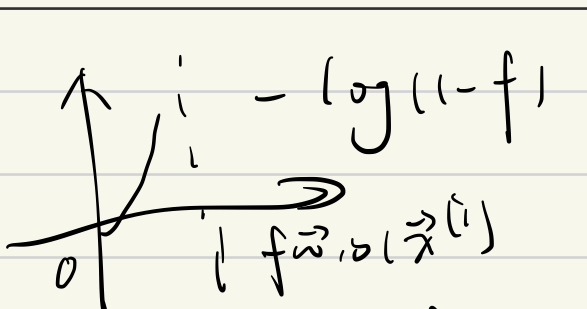 - log(1-f)
0 1 f w⃗,b(x⃗^(i))